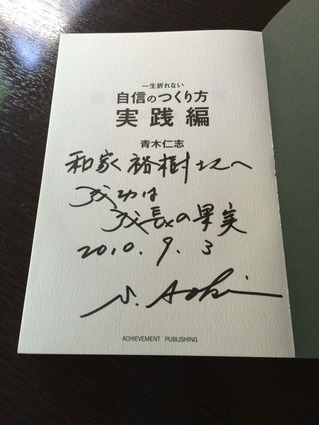 一生折れない
自信のつくり方
実践編
青木仁志
和家裕樹さんへ
成功は
成長の果実
2010.9.3
S. Aoki
ACHIEVEMENT PUBLISHING